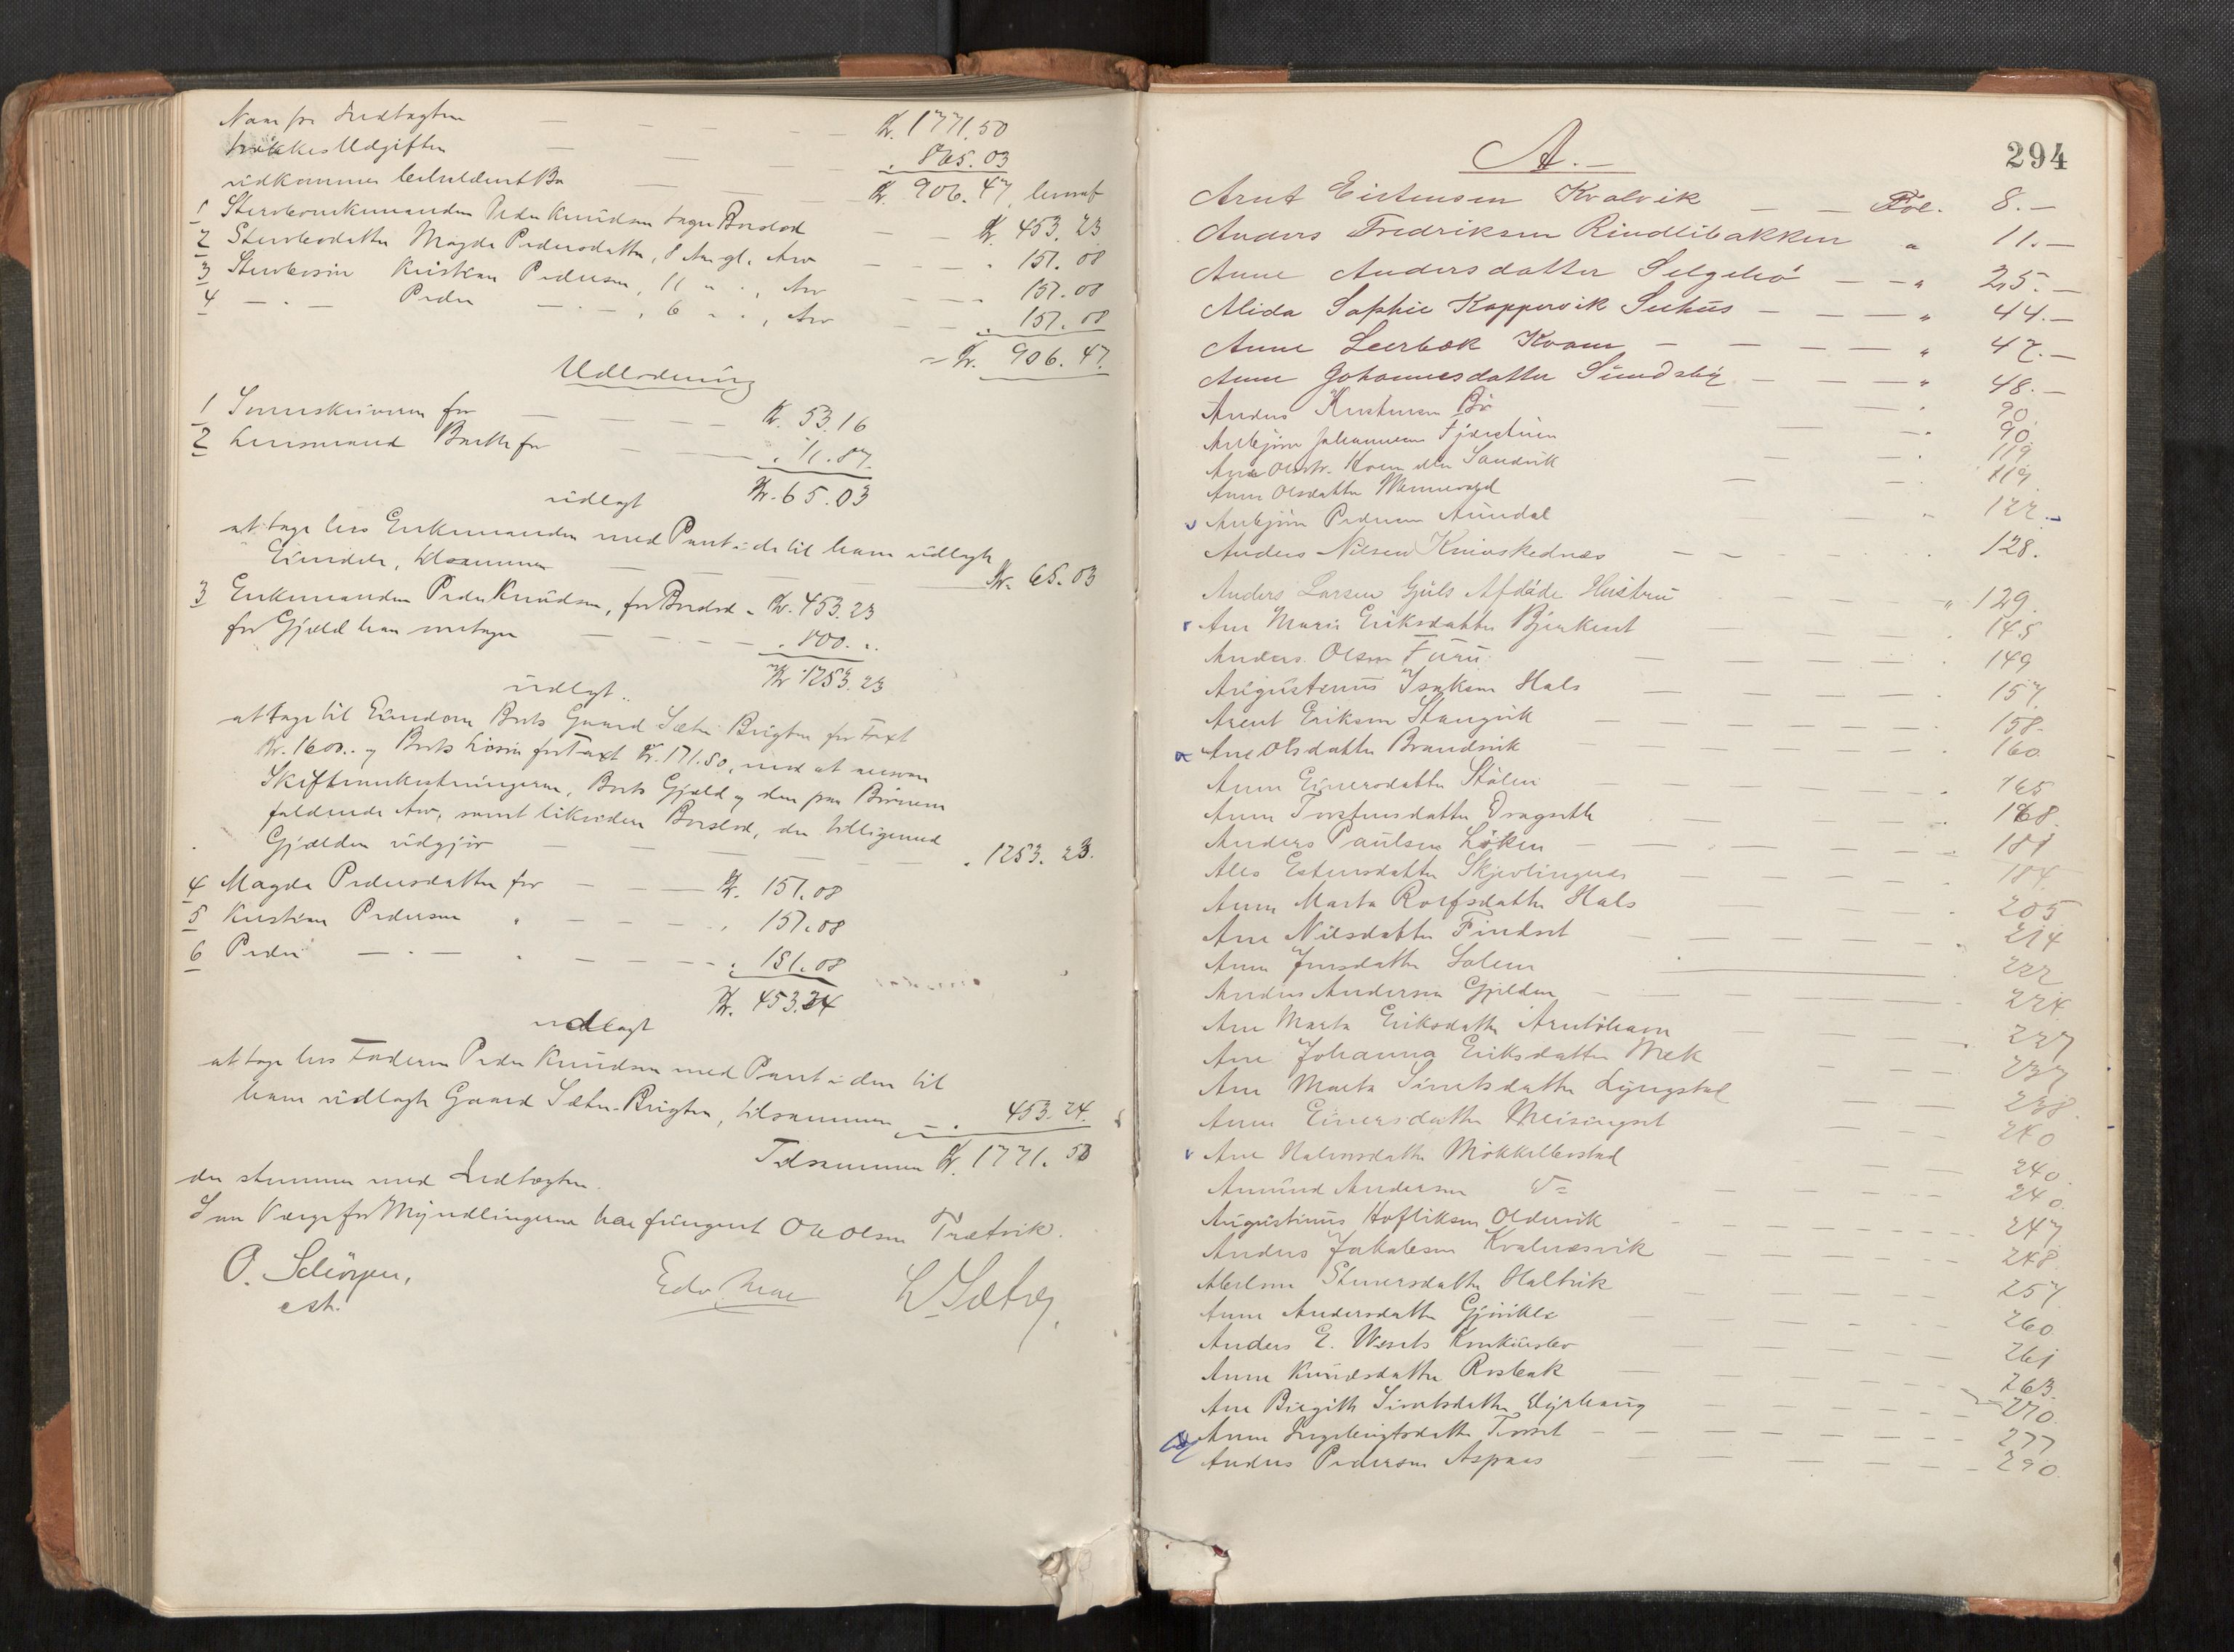 Naar fra Indtægten — — — Kr. 1771.50
trækkes Udgiften — — — " 865.03
udkommer beholdent Bo — — Kr. 906.47, hvoraf
1 Sterboenkemanden Peder Knudsen tager Boslod — — Kr. 453.23
2 Sterbodatter Magda Pedersdatter, 8 Aar gl. Arv — — " 151.08
3 Sterbosøn Kristian Pedersen, 11 " ", Arv — — " 151.08
4 — " — Peder — " —, 6 " ", Arv — — " 151.08
= Kr. 906.47.
Udlodning
1 Sorenskriveren for — — — Kr. 53.16
2 Lensmand Bæckfor — — " 11.87.
Kr. 65.03
udlagt
at tage hos Enkemanden med Pant i de til ham udlagte
Eiendele, tilsammen — — — Kr. 65.03
3 Enkemanden Peder Knudsen, for Boslod - Kr. 453.23
for Gjæld han overtager — — — " 800. "
Kr. 1253.23
udlagt
at tage til Eiendom Boets Gaard Sæter Brigten for Taxt
Kr. 1600.. og Boets Løsøre for Taxt Kr. 171.50, mod at ansvare
Skifteomkostningerne, Boets Gjæld og den paa Børnene
faldende Arv, samt likvidere Boslod, der tilligemed
Gjælden udgjør — — — " 1253.23.
4 Magda Pedersdatter for — — Kr. 151.08
5 Kristian Pedersen " — — " 151.08
6 Peder — " — " — — " 151.08
Kr. 453.24
udlagt
at tage hos Faderen Peder Knudsen med Pant i den til
ham udlagte Gaard Sæter-Brigten, tilsammen — " 453.24.
Tilsammen Kr. 1771.50
der stemmer med Indtægten.
Som Værge for Myndlingerne har fungeret Ole Olsen Trætvik.
O. Schörgen,
cst.
Edv. Moe
L. Sæter
294
A.—
Arnt Eistensen Kvalvik — — Fol. 8.—
Anders Fredriksen Rindlibakken " 11.—
Anne Andersdatter Selgebö — — " 25.—
Alida Sophie Koppervik Seehuus — — — " 44.—
Anne Leerbæk Kvam — — — — " 47.—
Anne Johannesdatter Sundsby — — — " 48.—
Anders Kristensen Bö — — " 90.
Anbjörn Johannesen Fjærstuen — — " 90.
Ane Olsdtr. Koen eller Sandvik — — " 119
Anne Olsdatter Mennevold — — " 119.
Anbjörn Pedersen Aundal — — " 122.
Anders Nilsen Knivskednæs — — " 128.
Anders Larsen Gjuls Afdøde Hustru — — " 129.
Ane Marie Eriksdatter Bjerkeset — — " 145
Anders Olsen Furu — — " 149
Augustinus Isaksen Hals — — " 157.
Arent Eriksen Stangvik — — " 158.
Ane Olsdatter Brandvik — — " 160.
Anne Einersdatter Stölen — — " 165
Anne Torstensdatter Dragseth — — " 168.
Anders Paulsen Löken — — " 181
Ales Estensdatter Skjevlingnes — — 184.
Anne Marta Rolfsdatter Hals — — " 205
Ane Nilsdatter Findset — — " 214
Anne Jonsdatter Solem — — 222
Anders Andersen Gjelden — — 224.
Ane Marta Eriksdatter Arntöhavn — — 227
Ane Johanna Eriksdatter Mek — — 237
Ane Marta Sivertsdatter Lyngstad — — 238.
Anne Einersdatter Meisingset — — 240
Ane Halvorsdatter Mökkelbostad 240.
Amund Andersen — — 240.
Augustinus Hofliksen Oldervik — — 247.
Anders Jakobsen Kvalnesvik — — 248.
Abelone Steinersdatter Haltvik — — 257.
Anne Andersdatter Gjörikle — — 260
Anders E. Weseths Konkursbo — — 261
Anne Knudsdatter Rosbak — — 263.
Ane Birgitte Sivertsdatter Dyrhaug — — 270.
Anne Ingebrigtsdatter Torset — — 277
Anders Pedersen Aspaas — — 290.